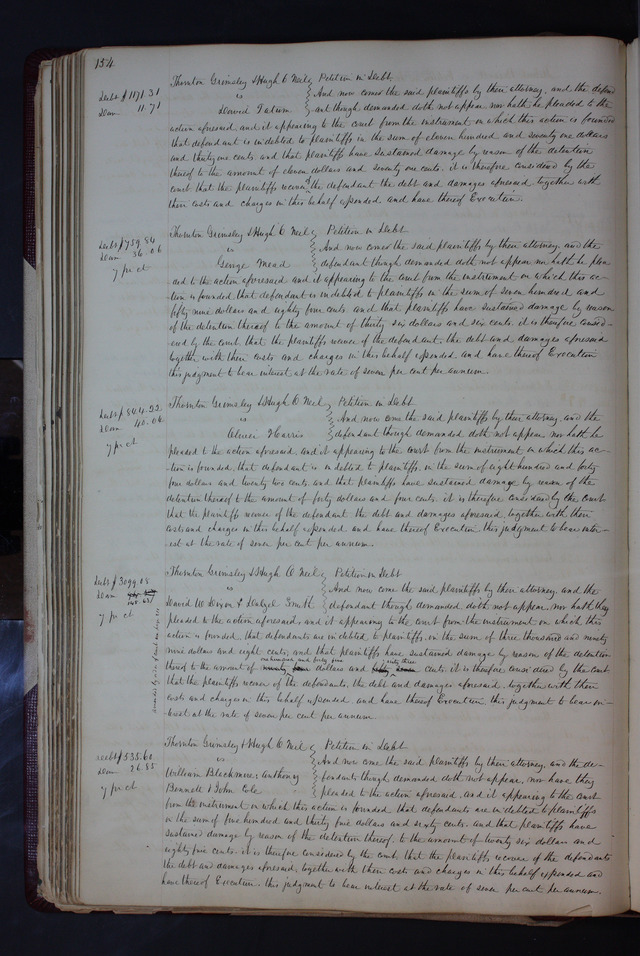 154.
Thornton Grimsley & Hugh O Neil Petition in Debt
Debt $1171.31 And now comes the said plaintiffs by their attorney, and the defend
Dam 11.71 vs David Tatum ant though demanded doth not appear nor hath he pleaded to the
action aforesaid and it appearing to the court from the instrument on which this action is founded
that defendant is indebted to plaintiffs in the sum of eleven hundred and seventy one dollars
and thirty one cents and that plaintiffs have sustained damage by reason of the detention
thereof to the amount of eleven dollars and seventy one cents. it is therefore considered by the
court that the plaintiffs recover of the defendant the debt and damages aforesaid together with
their costs and charges in this behalf expended and have thereof Execution.
Thornton Grimsley & Hugh O Neil Petition in Debt
Debt $759.84 vs And now comes the said plaintiffs by their attorney and the
Dam 36.06 George Mead defendant though demanded doth not appear nor hath he plea
7 pr ct
ded to the action aforesaid and it appearing to the court from the instrument on which this ac-
tion is founded that defendant is indebted to plaintiffs in the sum of seven hundred and
fifty nine dollars and eighty four cents and that plaintiffs have sustained damage by reason
of the detention thereof to the amount of thirty six dollars and six cents. it is therefore consid-
ered by the court that the plaintiffs recover of the defendant, the debt and damages aforesaid
together with their costs and charges in this behalf expended and have thereof Execution
this judgment to bear interest at the rate of seven per cent per annum.
Thornton Grimsley & Hugh O Neil Petition in Debt
Debt $844.22 vs And now come the said plaintiffs by their attorney, and the
Dam 40.04 Harris defendant though demanded doth not appear nor hath he
7 pr ct
pleaded to the action aforesaid, and it appearing to the court from the instrument on which this ac-
tion is founded, that defendant is indebted to plaintiffs, in the sum of eight hundred and forty
four dollars and twenty two cents and that plaintiffs have sustained damage by reason of the
detention thereof to the amount of forty dollars and four cents it is therefore considered by the court
that the plaintiffs recover of the defendant the debt and damages aforesaid, together with their
costs and charges in this behalf expended and have thereof Execution this judgment to bear inter-
est at the rate of seven per cent per annum.
Thornton Grimsley & Hugh O Neil Petition in Debt
Debt $3099.08 vs And now come the said plaintiffs by their attorney, and the
Dam David W & Smith defendant though demanded doth not appear, nor hath they
7 pr ct
pleaded to the action aforesaid, and it appearing to the court from the instrument on which this
action is founded, that defendants are indebted to plaintiffs, in the sum of three thousand and ninety
nine dollars and eight cents, and that plaintiffs have sustained damage by reason of the detention
one hundred and forty five sixty three
thereof to the amount of dollars and cents. it is therefore considered by the court
that the plaintiffs recover of the defendants, the debt and damages aforesaid, together with their
costs and charges in this behalf expended, and have thereof Execution this judgment to bear in-
terest at the rate of seven per cent per annum
Thornton Grimsley & Hugh O Neil Petition in Debt
Debt $535.60 vs And now come the said plaintiffs by their attorney, and the de-
Dam 26.85 William Blackmore, Anthony fendants though demanded doth not appear, nor have they
7 pr ct Bennett & John Cole pleaded to the action aforesaid, and it appearing to the court
from the instrument on which this action is founded, that defendants are indebted to plaintiffs
in the sum of five hundred and thirty five dollars and sixty cents, and that plaintiffs have
sustained damage by reason of the detention thereof, to the amount of twenty six dollars and
eighty five cents. it is therefore considered by the court that the plaintiffs recover of the defendants
the debt and damages aforesaid, together with their costs and charges in this behalf expended and
have thereof Execution. this judgment to bear interest at the rate of seven per cent per annum.